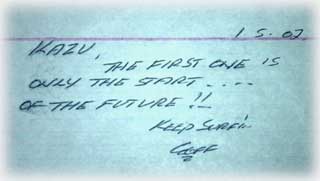 1 5. 02
KAZU,
THE FIRST ONE IS
ONLY THE START ....
OF THE FUTURE !!
KEEP SURFIN
GEFF